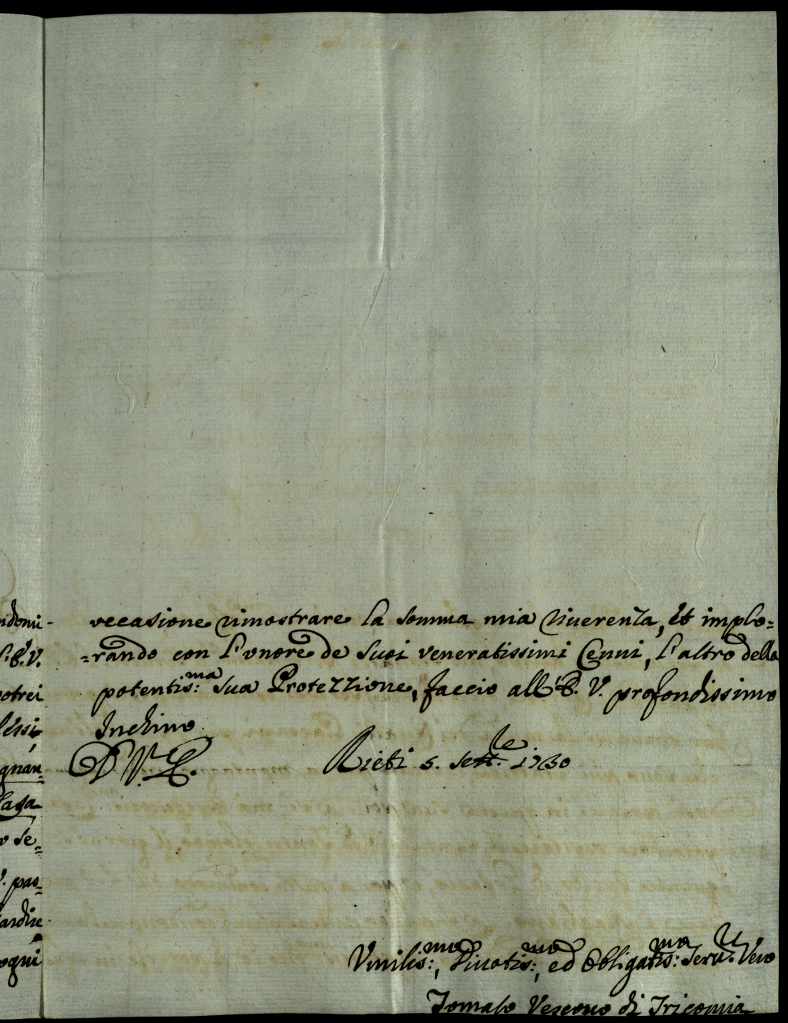 ndomi-
l'E.V.
potrei
lessi
gnan
o se=
V. pas=
ardire
ogni
occasione rimostrare la somma mia riverenza, et implo=
=rando con l'onore de Suoi veneratissimi Cenni, l'altro della
potentis:ma Sua Protezzione, faccio all'E. V. profondissimo
Inchino.
D V. E. Rieti 5. Sett.bre 1760
Umilis:mo, Divotis:mo, ed Obligatis:mo Serv.e Vero
Tomaso Vescovo di Tricomia